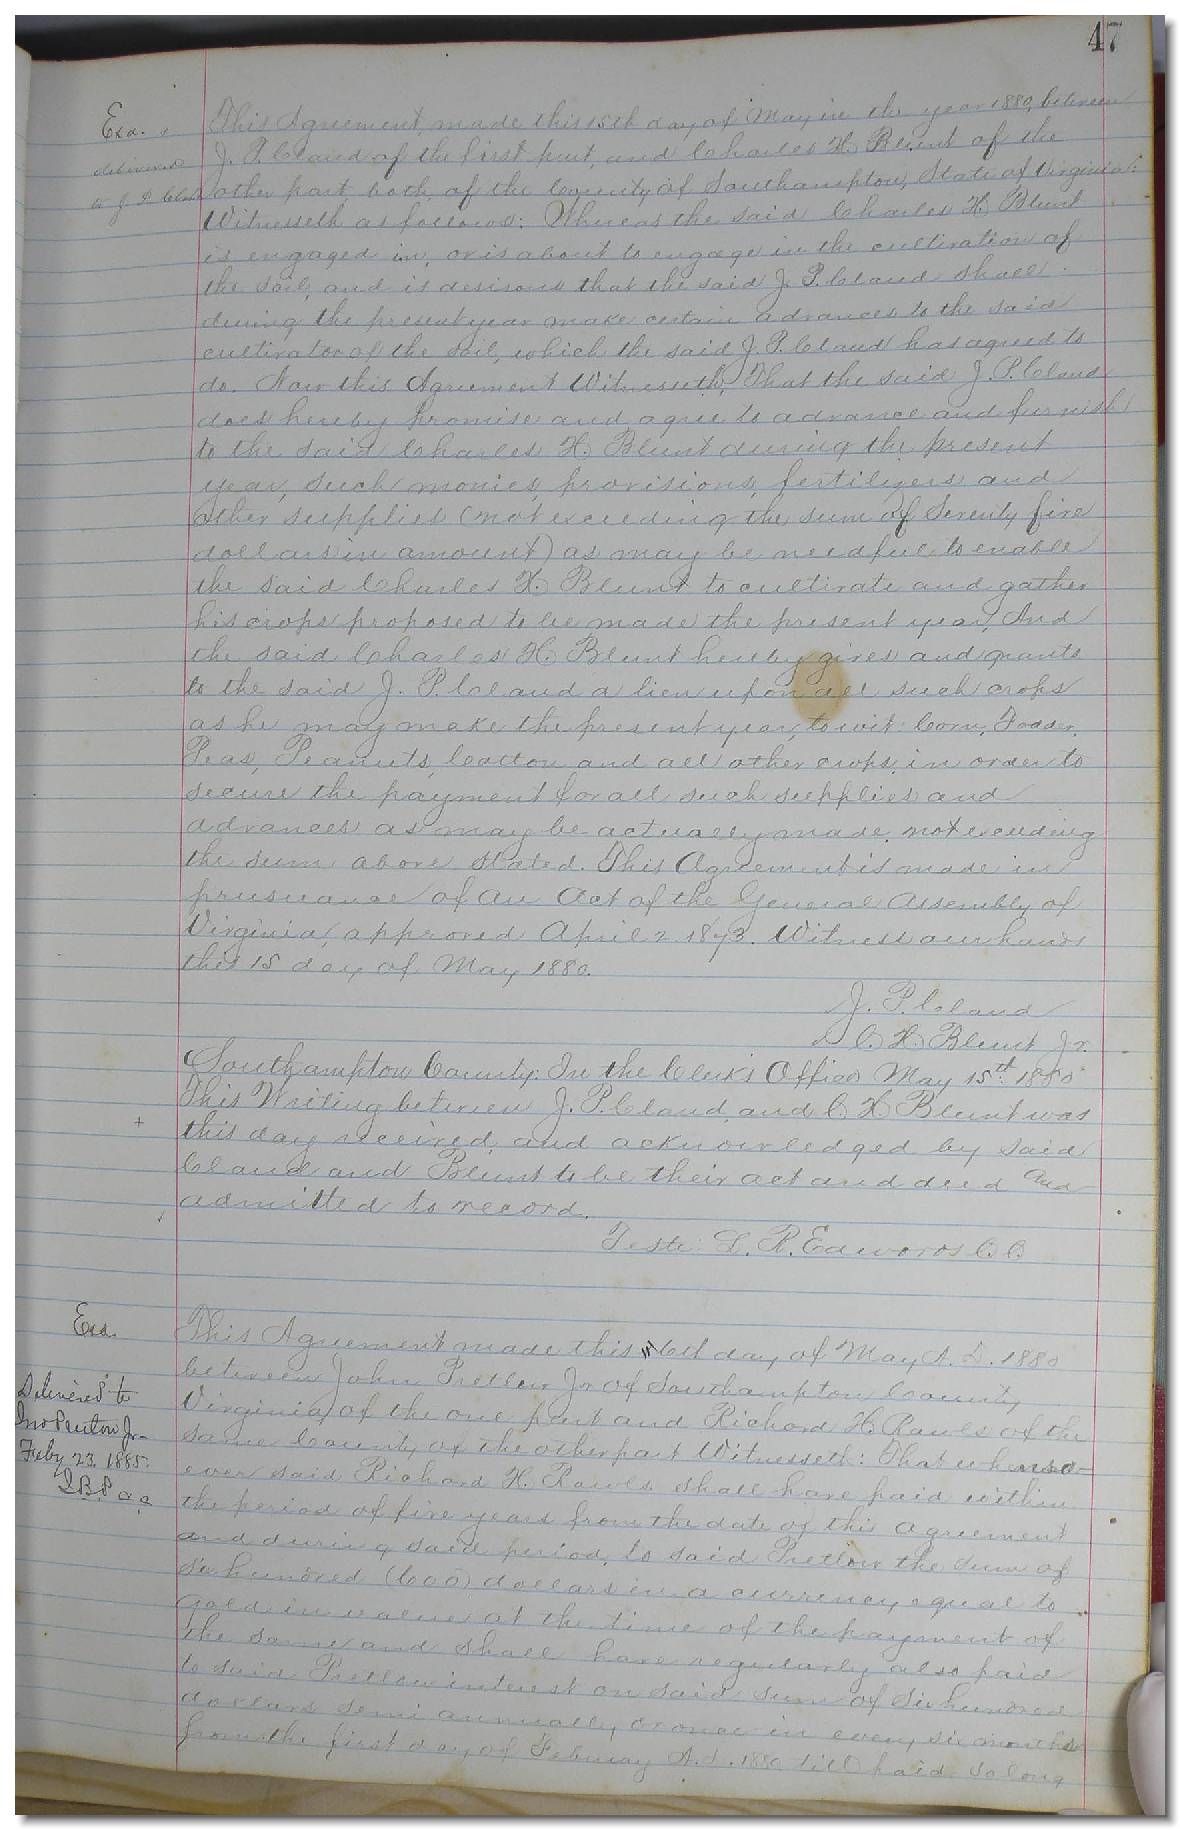 47
Exa.
delivered
to J. P. Cland
This Agreement, made this 15th day of May in the year 1880, between
J. P. Cland of the first part, and Charles H. Blunt of the
other part, both of the County of Southampton, State of Virginia:
Witnesseth as follows: Whereas the said Charles H. Blunt
is engaged in, or is about to engage in the cultivation of
the soil, and is desirous that the said J. P. Cland shall
during the present year make certain advances to the said
cultivator of the soil, which the said J. P. Cland has agreed to
do. Now this Agreement Witnesseth, That the said J. P. Cland
does hereby promise and agree to advance and furnish
to the said Charles H. Blunt during the present
year, such monies, provisions, fertilizers and
other supplies (not exceeding the sum of Seventy five
dollars in amount) as may be needful to enable
the said Charles H. Blunt to cultivate and gather
his crops proposed to be made the present year, And
the said Charles H. Blunt hereby gives and grants
to the said J. P. Cland a lien upon all such crops
as he may make the present year, to wit: Corn, Fodder,
Peas, Peanuts, Cotton and all other crops, in order to
secure the payment for all such supplies and
advances as may be actually made, not exceeding
the sum above stated. This Agreement is made in
prusuance of an Act of the General Assembly of
Virginia, approved April 2 1873. Witness our hands
this 15 day of May 1880.
J. P. Cland
C. H. Blunt Jr.
Southampton County: In the Clerk's Office May 15th 1880
This Writing between J. P. Cland and C H Blunt was
this day received, and acknowledged by said
Cland and Blunt to be their act and deed and
admitted to record.
Teste: L. R. Edwards C. C.
Exa.
Delivered to
Jno Pretlow Jr
Feby 23, 1885.
This Agreement made this 6th day of May A. D. 1880
between John Pretlow Jr of Southampton County
Virginia, of the one part and Richard H. Rawls of the
same County of the other part Witnesseth: That whenso-
ever said Richard H. Rawls shall have paid within
the period of five years from the date of this Agreement
and during said period, to said Pretlow the sum of
Six hundred (600) dollars in a currency equal to
gold in value at the time of the payment of
the same and shall have regularly also paid
to said Pretlow interest on said sum of Six hundred
dollars semi annually, or once in every six months
from the first day of Febuary A. D. 1880 till paid. So long